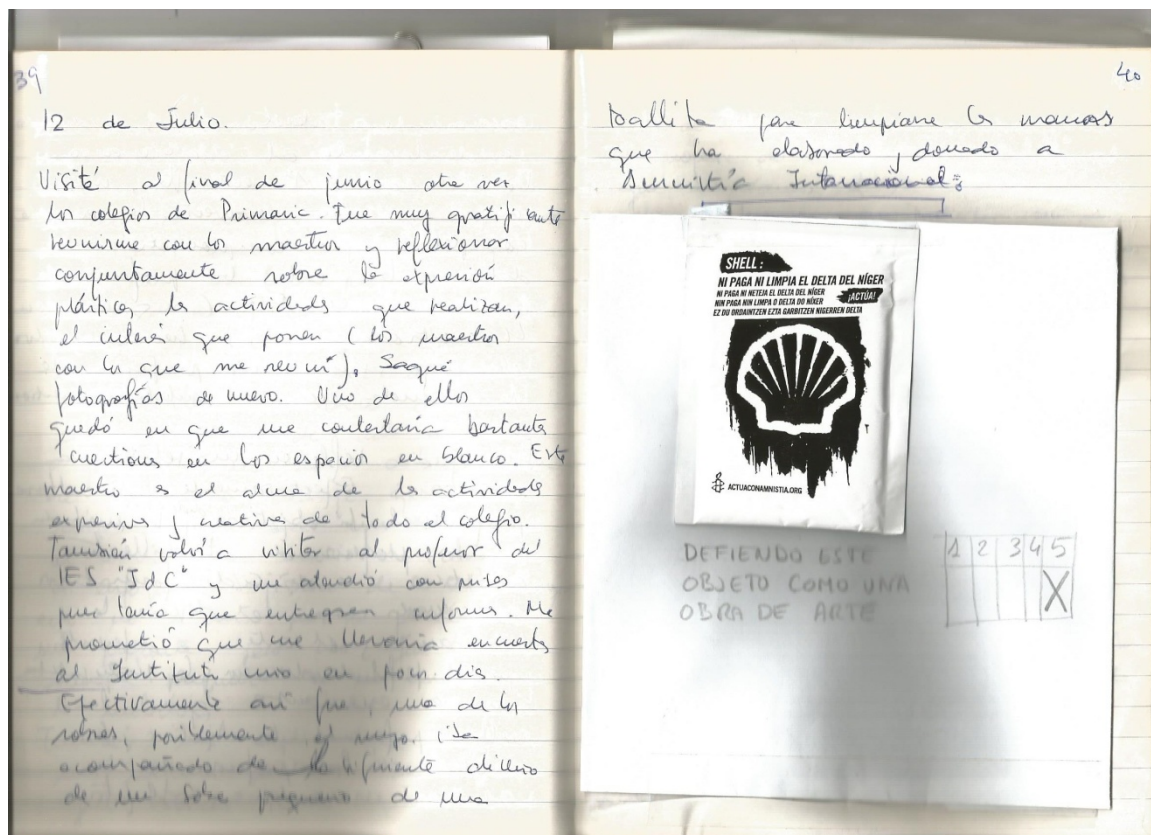 39
12 de Julio.
Visité al final de junio otra vez
los colegios de Primaria. Fue muy gratificante
reunirme con los maestros y reflexionar
conjuntamente sobre la expresión
plástica, las actividades que realizan,
el interés que ponen (los maestros
con los que me reuní). Saqué
fotografías de nuevo. Uno de ellos
quedó en que me contestaría bastantes
cuestiones en los espacios en blanco. Este
maestro es el alma de las actividades
expresivas y creativas de todo el colegio.
También volví a visitar al profesor del
IES "JdC" y me atendió con prisas
pues tenía que entregar informes. Me
prometió que me llevaría encuestas
al Instituto mío en pocos días.
Efectivamente así fue, uno de los
sobres, posiblemente el suyo, iba
acompañado de diseño
de un sobre pequeño de una
40
toallita para limpiarse las manos
que ha elaborado y donado a
Amnistía Internacional:
SHELL:
NI PAGA NI LIMPIA EL DELTA DEL NÍGER
NI PAGA NI NETEJA EL DELTA DEL NÍGER
NIN PAGA NIN LIMPA O DELTA DO NÍXER
¡ACTÚA!
EZ DU ORDAINTZEN EZTA GARBITZEN NIGERREN DELTA
ACTUACONAMNISTIA.ORG
DEFIENDO ESTE
OBJETO COMO UNA
OBRA DE ARTE
1 2 3 4 5
X